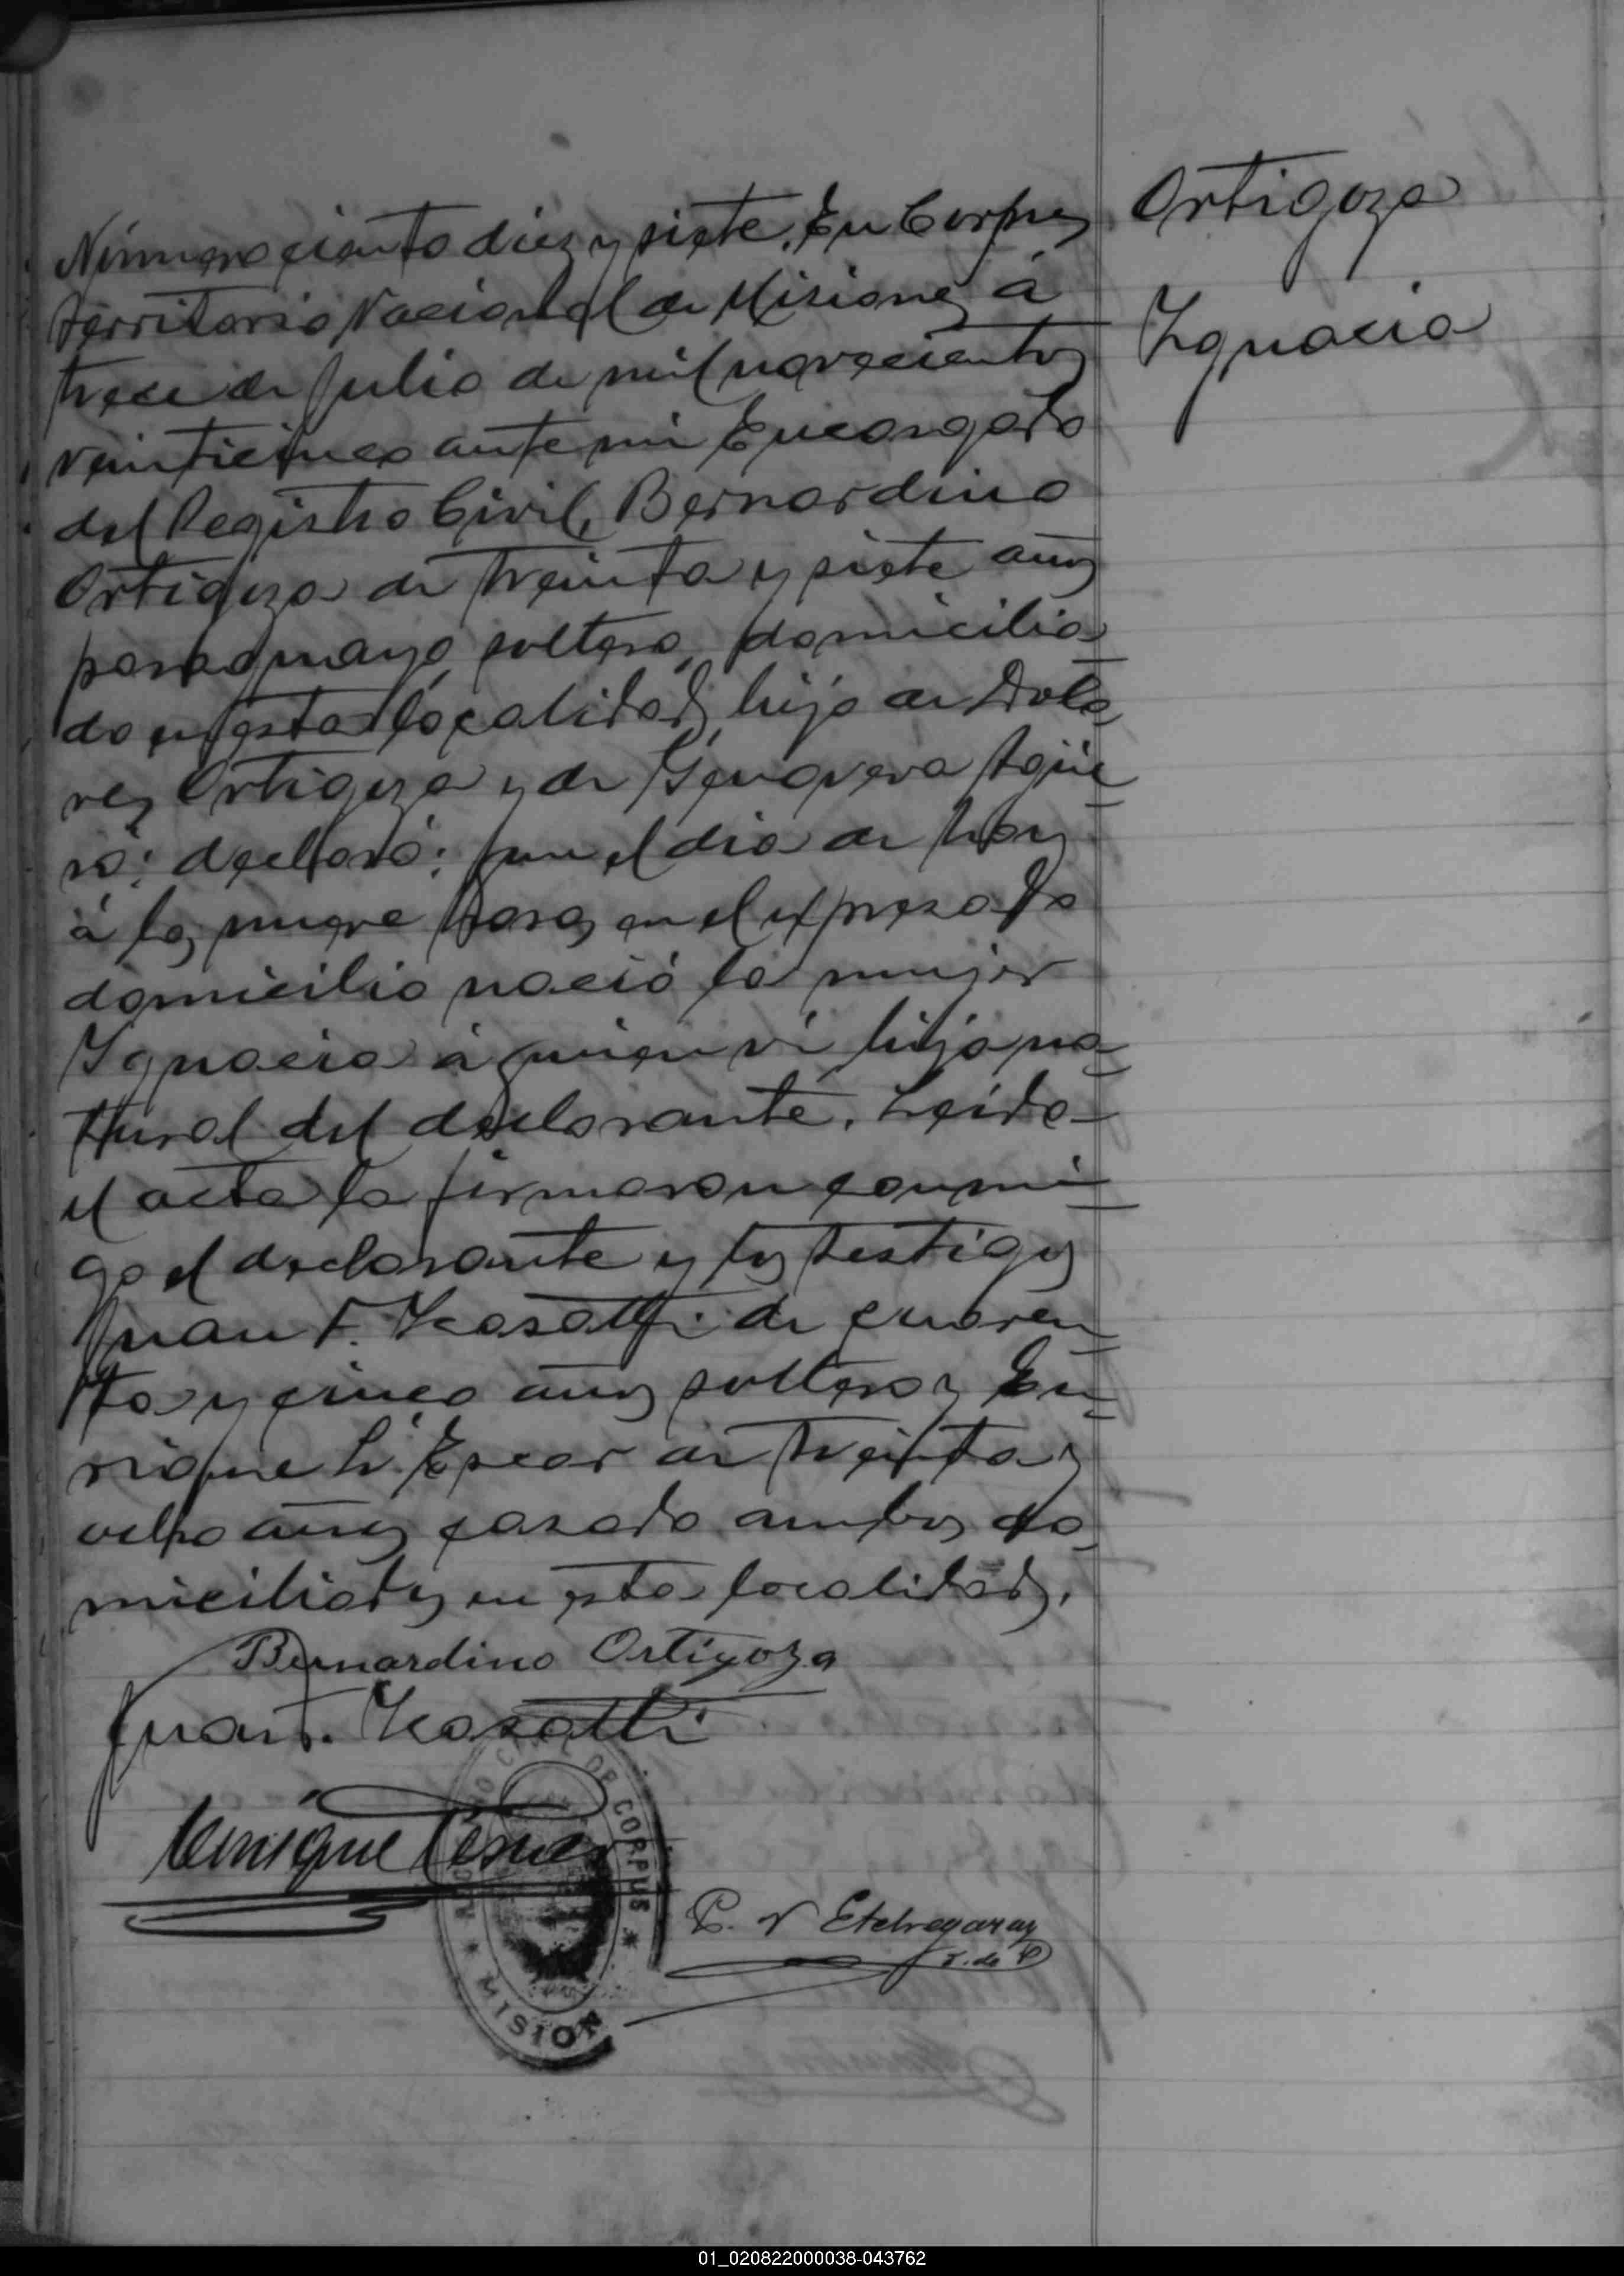 Ortigoza
Ignacia
Número ciento diez y siete. En Corpus
Territorio Nacional de Misiones á
trece de Julio de mil novecientos
veinticinco ante mi Encargado
del Registro Civil, Bernardino
Ortigoza de treinta y siete años
paraguayo, soltero, domicilia
do en esta localidad, hijo de Dolo
res Ortigoza y de Genoveva Agüe
ro; declaró: que el dia de hoy
á las nueve horas en el expresado
domicilio nació la mujer
Ygnacia á quien vi hija na-
tural del declarante. Leida
el acta la firmaron conmi
go el declarante y los testigos
Juan F. de cuaren
ta y cinco años soltero y En-
rique de treinta y
ocho años casado ambos do
miciliados en esta localidad.
Bernardino Ortigoza
Juan F.
Enrique
REGISTRO CIVIL DE CORPUS
* MISIONES *
P. N Etchegaray
J. de P
01_020822000038-043762